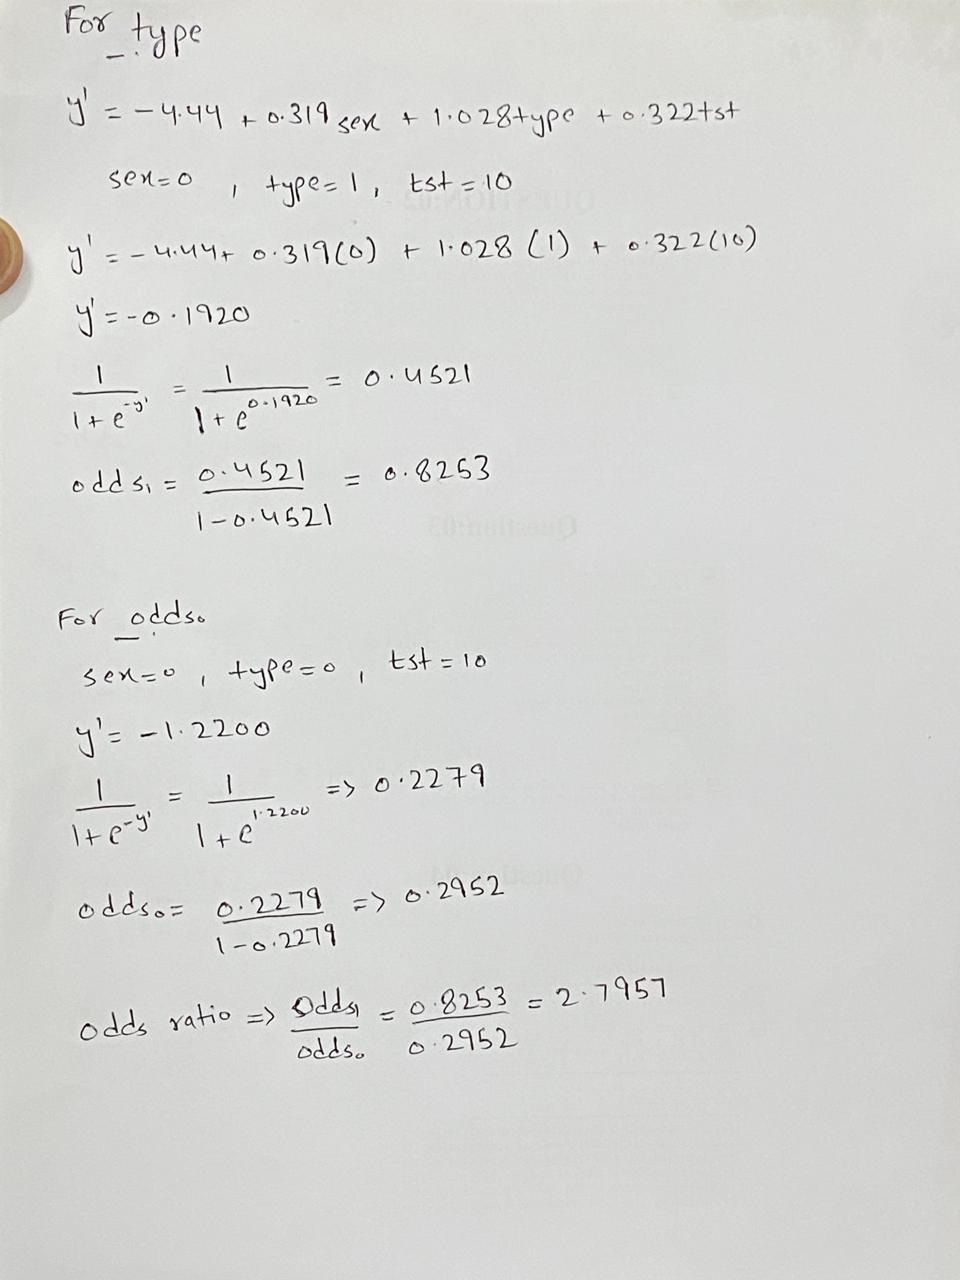 For type
y' = -4.44 + 0.319 sex + 1.028type + 0.322tst
sex=0 , type=1, tst=10
y' = -4.44+ 0.319(0) + 1.028 (1) + 0.322(10)
y'=-0.1920
1/(1+e^-y') = 1/(1+e^0.1920) = 0.4521
odds₁ = 0.4521/(1-0.4521) = 0.8253
For odds₀
sex=0 , type=0 , tst=10
y'= -1.2200
1/(1+e^-y') = 1/(1+e^1.2200) => 0.2279
odds₀= 0.2279/(1-0.2279) => 0.2952
odds ratio => odds₁/odds₀ = 0.8253/0.2952 = 2.7957